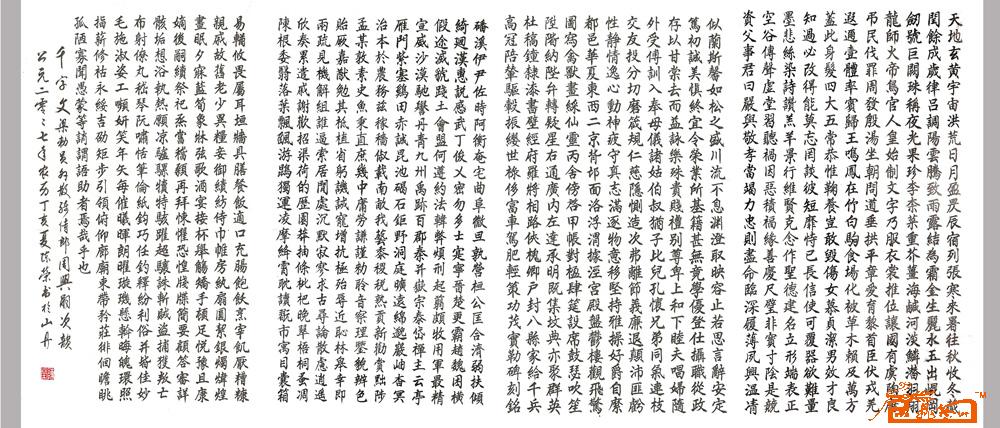 天地玄黃宇宙洪荒日月盈昃辰宿列張寒來暑往秋收冬藏
閏餘成歲律呂調陽雲騰致雨露結為霜金生麗水玉出崑岡
劍號巨闕珠稱夜光果珍李柰菜重芥薑海鹹河淡鱗潛羽翔
龍師火帝鳥官人皇始制文字乃服衣裳推位讓國有虞陶唐
弔民伐罪周發殷湯坐朝問道垂拱平章愛育黎首臣伏戎羌
遐邇壹體率賓歸王鳴鳳在竹白駒食場化被草木賴及萬方
蓋此身髮四大五常恭惟鞠養豈敢毀傷女慕貞潔男效才良
知過必改得能莫忘罔談彼短靡恃己長信使可覆器欲難量
墨悲絲染詩讚羔羊景行維賢克念作聖德建名立形端表正
空谷傳聲虛堂習聽禍因惡積福緣善慶尺璧非寶寸陰是競
資父事君曰嚴與敬孝當竭力忠則盡命臨深履薄夙興溫凊
似蘭斯馨如松之盛川流不息淵澄取映容止若思言辭安定
篤初誠美慎終宜令榮業所基籍甚無竟學優登仕攝職從政
存以甘棠去而益詠樂殊貴賤禮別尊卑上和下睦夫唱婦隨
外受傅訓入奉母儀諸姑伯叔猶子比兒孔懷兄弟同氣連枝
交友投分切磨箴規仁慈隱惻造次弗離節義廉退顛沛匪虧
性靜情逸心動神疲守真志滿逐物意移堅持雅操好爵自縻
都邑華夏東西二京背邙面洛浮渭據涇宮殿盤鬱樓觀飛驚
圖寫禽獸畫綵仙靈丙舍傍啟甲帳對楹肆筵設席鼓瑟吹笙
陞階納陛弁轉疑星右通廣內左達承明既集墳典亦聚群英
杜稿鍾隸漆書壁經府羅將相路俠槐卿戶封八縣家給千兵
高冠陪輦驅轂振纓世祿侈富車駕肥輕策功茂實勒碑刻銘
磻溪伊尹佐時阿衡奄宅曲阜微旦孰營桓公匡合濟弱扶傾
綺迴漢惠說感武丁俊乂密勿多士寔寧晉楚更霸趙魏困橫
假途滅虢踐土會盟何遵約法韓弊煩刑起翦頗牧用軍最精
宣威沙漠馳譽丹青九州禹跡百郡秦并嶽宗泰岱禪主云亭
雁門紫塞雞田赤城昆池碣石鉅野洞庭曠遠綿邈巖岫杳冥
治本於農務茲稼穡俶載南畝我藝黍稷稅熟貢新勸賞黜陟
孟軻敦素史魚秉直庶幾中庸勞謙謹敕聆音察理鑑貌辨色
貽厥嘉猷勉其祗植省躬譏誡寵增抗極殆辱近恥林皋幸即
兩疏見機解組誰逼索居閒處沉默寂寥求古尋論散慮逍遙
欣奏累遣慼謝歡招渠荷的歷園莽抽條枇杷晚翠梧桐早凋
陳根委翳落葉飄颻遊鵾獨運凌摩絳霄耽讀翫市寓目囊箱
易輶攸畏屬耳垣牆具膳餐飯適口充腸飽飫烹宰飢厭糟糠
親戚故舊老少異糧妾御績紡侍巾帷房紈扇圓絜銀燭煒煌
晝眠夕寐藍筍象床弦歌酒宴接杯舉觴矯手頓足悅豫且康
嫡後嗣續祭祀烝嘗稽顙再拜悚懼恐惶牋牒簡要顧答審詳
骸垢想浴執熱願涼驢騾犢特駭躍超驤誅斬賊盜捕獲叛亡
布射僚丸嵇琴阮嘯恬筆倫紙鈞巧任釣釋紛利俗並皆佳妙
毛施淑姿工顰妍笑年矢每催曦暉朗曜璇璣懸斡晦魄環照
指薪修祜永綏吉劭矩步引領俯仰廊廟束帶矜莊徘徊瞻眺
孤陋寡聞愚蒙等誚謂語助者焉哉乎也
千字文梁勅員外散騎侍郎周興嗣次韻
公元二零零七年农历丁亥夏陈荣书於山丹